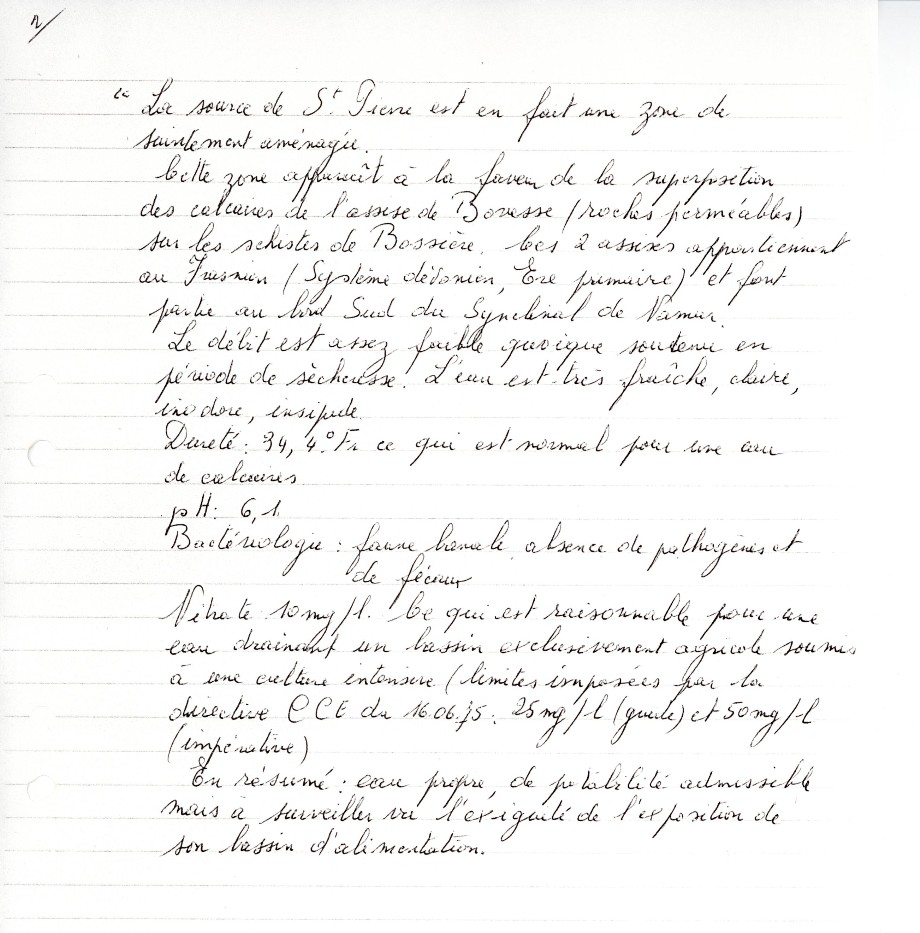 2/
" La source de St. Pierre est en fait une zone de
suintement aménagée.
Cette zone apparaît à la faveur de la superposition
des calcaires de l'assise de Bovesse (roches perméables)
sur les schistes de Bossière. Ces 2 assises appartiennent
au Frasnien (Système dévonien, Ere primaire) et font
partie au bord Sud du Synclinal de Namur.
Le débit est assez faible quoique soutenu en
période de sècheresse. L'eau est très fraîche, claire,
inodore, insipide.
Dureté : 34,4° Fr ce qui est normal pour une eau
de calcaires.
pH : 6,1
Bactériologie : faune banale, absence de pathogènes et
de fécaux
Nitrate 10 mg/l. Ce qui est raisonnable pour une
eau drainant un bassin exclusivement agricole soumis
à une culture intensive (limites imposées par la
directive CCE du 16.06.75 : 25 mg/l (guide) et 50 mg/l
(impérative)
En résumé : eau propre, de potabilité admissible
mais à surveiller vu l'exiguité de l'exposition de
son bassin d'alimentation.